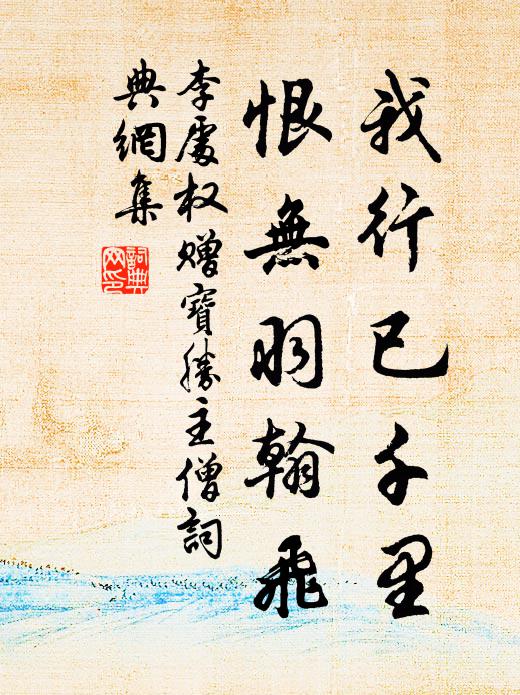 我行已千里
恨無羽翰飛
李處权赠寶勝主僧詞
典網集
詞典
网印